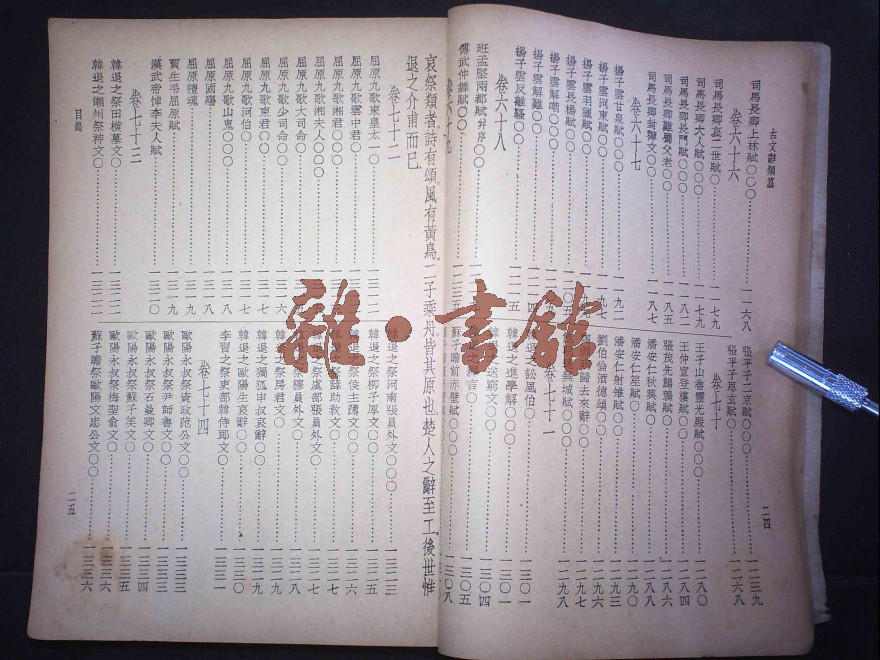 古文辭類纂
二四
司馬長卿上林賦〇〇〇……一一六八
卷六十六
司馬長卿哀二世賦〇……一一七九
司馬長卿大人賦〇〇〇……一一七九
司馬長卿長門賦〇〇〇……一一八二
司馬長卿難蜀父老〇〇
司馬長卿封禪文〇〇……一一八七
卷六十七
揚子雲甘泉賦〇〇〇……一一九二
揚子雲河東賦〇〇……一一九七
揚子雲羽獵賦〇〇〇
揚子雲長楊賦〇〇〇……一二〇五
揚子雲解嘲〇〇〇
揚子雲解難〇〇
揚子雲反離騷〇〇……一二一五
卷六十八
班孟堅兩都賦并序〇〇
傅武仲舞賦〇〇……一二三五
卷六十九
張平子二京賦〇〇〇……一二三九
張平子思玄賦〇……一二六八
卷七十
王子山魯靈光殿賦〇〇〇……一二八〇
王仲宣登樓賦〇〇……一二八四
張茂先鷦鷯賦〇……一二八六
潘安仁秋興賦〇……一二八八
潘安仁笙賦〇……一二九〇
潘安仁射雉賦〇〇……一二九三
劉伯倫酒德頌〇〇……一二九六
歸去來辭〇〇……一二九七
蕪城賦〇〇〇……一二九八
卷七十一
訟風伯〇……一三〇一
韓退之進學解〇〇〇……一三〇一
韓退之送窮文〇〇……一三〇四
蘇子瞻前赤壁賦〇〇〇……一三〇五
一三〇八
哀祭類者詩有頌。風有黃鳥。二子乘舟皆其原也。楚人之辭至工。後世惟
退之介甫而已
卷七十二
屈原九歌東皇太一〇……一三一二
屈原九歌雲中君〇〇
屈原九歌湘君〇〇〇
屈原九歌湘夫人〇〇〇
屈原九歌大司命〇〇
屈原九歌少司命〇〇
屈原九歌東君〇〇……一三一七
屈原九歌河伯〇……一三一七
屈原九歌山鬼〇〇〇……一三一八
屈原國殤……一三一八
屈原禮魂……一三一九
賈生弔屈原賦……一三一九
漢武帝悼李夫人賦……一三二〇
卷七十三
韓退之祭田橫墓文〇……一三二二
韓退之潮州祭神文〇……一三二二
韓退之祭河南張員外文〇〇〇……一三二三
韓退之祭柳子厚文〇〇……一三二五
韓退之祭侯主簿文〇……一三二六
祭薛助教文〇……一三二七
祭虞部張員外文〇……一三二七
祭穆員外文〇……一三二八
韓退之祭房君文〇……一三二九
韓退之獨孤申叔哀辭〇〇……一三二九
韓退之歐陽生哀辭〇〇……一三三〇
李習之祭吏部韓侍郎文〇……一三三一
卷七十四
歐陽永叔祭資政范公文〇〇……一三三三
歐陽永叔祭尹師魯文〇〇……一三三三
歐陽永叔祭石曼卿文〇〇……一三三四
歐陽永叔祭蘇子美文〇……一三三五
歐陽永叔祭梅聖俞文〇……一三三六
蘇子瞻祭歐陽文忠公文〇〇……一三三六
目錄
二五
雜·書館